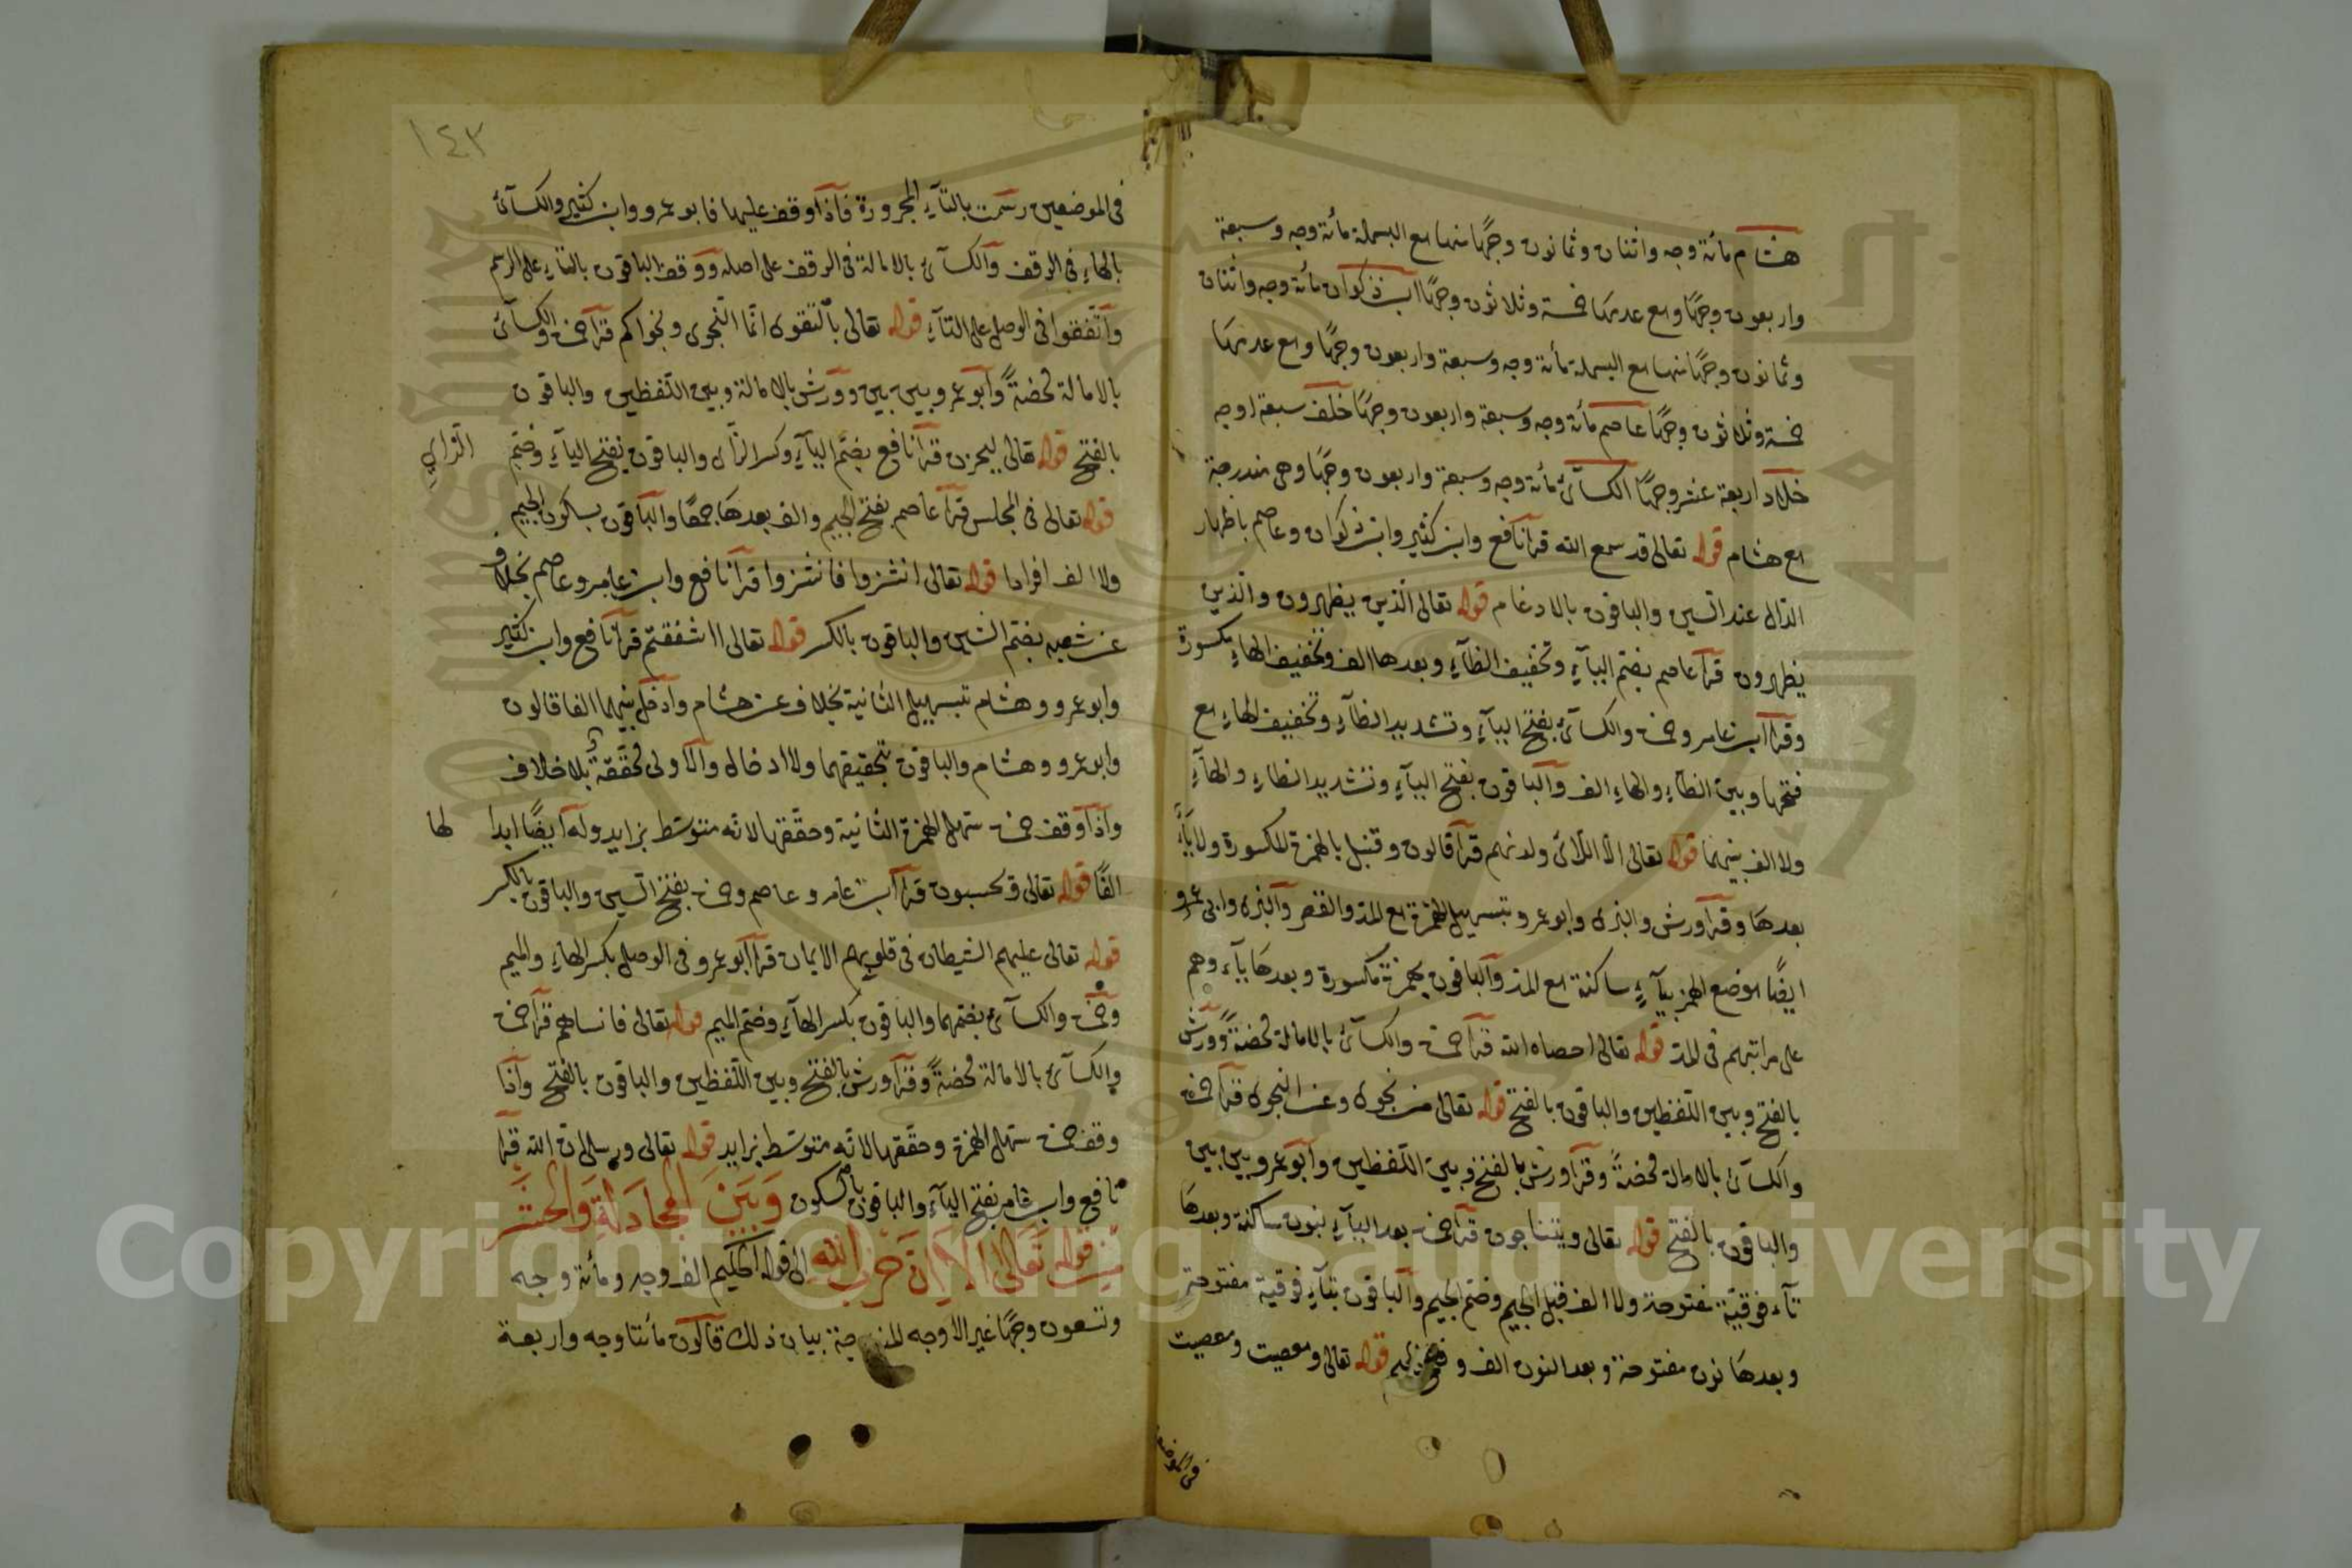 هشام مائة وجه واثنان وثمانون وجهًا منها مع البسملة مائة وجه وسبعة
واربعون وجهًا ومع عدمها خمسة وثلاثون وجهًا ابن ذكوان مائة وجه واثنان
وثمانون وجهًا منها مع البسملة مائة وجه وسبعة واربعون وجهًا ومع عدمها
خمسة وثلاثون وجهًا عاصم مائة وجه وسبعة واربعون وجهًا خلف سبعة اوجه
خلاد اربعة عشر وجهًا الكسآئى مائة وجه وسبعة واربعون وجهًا وهى مندرجة
مع هشام قوله تعالى قد سمع الله قرأ نافع وابن كثير وابن ذكوان وعاصم باظهار
الدال عند السين والباقون بالادغام قوله تعالى الذين يظهرون والذين
يظهرون قرأ عاصم بضم اليآء وتخفيف الظآء وبعدها الف وتخفيف الهاء مكسورة
وقرأ ابن عامر وحمزة والكسآئى بفتح اليآء وتشديد الظآء وتخفيف الهاء مع
فتحها وبين الظاء والهاء الف والباقون بفتح اليآء وتشديد الظاء والهآء
ولا الف بينهما قوله تعالى الا اللائى ولدنهم قرأ قالون وقنبل بالهمزة المكسورة ولا يآء
بعدها وقرأ ورش والبزى وابوعمرو بتسهيل الهمزة مع المد والقصر والبزى وابى عمرو
ايضًا موضع الهمز يآء ساكنة مع المد والباقون بهمزة مكسورة وبعدها يآء وهم
على مراتبهم فى المد قوله تعالى احصاه الله قرأ حمزة والكسآئى بالامالة محضةً وورش
بالفتح وبين اللفظين والباقون بالفتح قوله تعالى من نجوى وعن النجوى قرأ حمزة
والكسآئى بالامالة محضةً وقرأ ورش بالفتح وبين اللفظين وابوعمرو بين بين
والباقون بالفتح قوله تعالى ويتناجون قرأ حمزة بعد اليآء بنون ساكنة وبعدها
تآء فوقيّة مفتوحة ولا الف قبل الجيم وضم الجيم والباقون بتآء فوقية مفتوحة
وبعدها نون مفتوحة وبعد النون الف وفتح الجيم قوله تعالى ومعصيت ومعصيت
فى الموضعين
١٤٣
فى الموضعين رسمت بالتآء المجرورة فاذا وقف عليها فابوعمرو وابن كثير والكسآئى
بالهاء فى الوقف والكسآئى بالامالة فى الوقف على اصله ووقف الباقون بالتاء على الرسم
واتفقوا فى الوصل على التآء قوله تعالى بالتقوى انما النجوى ونجواكم قرأ حمزة والكسآئى
بالامالة محضةً وابوعمرو بين بين وورش بالامالة وبين اللفظين والباقون
بالفتح قوله تعالى ليحزن قرأ نافع بضم اليآء وكسر الزاى والباقون بفتح اليآء وضم الزاي
قوله تعالى فى المجلس قرأ عاصم بفتح الجيم والف بعدها جمعًا والباقون بسكون الجيم
ولا الف افرادا قوله تعالى انشزوا فانشزوا قرأ نافع وابن عامر وعاصم بخلاف
عن شعبه بضم الشين والباقون بالكسر قوله تعالى ااشفقتم قرأ نافع وابن كثير
وابوعمرو وهشام بتسهيل الثانية بخلاف عن هشام وادخل بينهما الفا قالون
وابوعمرو وهشام والباقون بتحقيقهما ولا ادخال والاولى محققة بلا خلاف
واذا وقف حمزة سهل الهمزة الثانية وحققها لانه متوسّط بزايد وله ايضًا ابدالها
الفًا قوله تعالى ويحسبون قرأ ابن عامر وعاصم وحمزة بفتح السين والباقون بالكسر
قوله تعالى عليهم الشيطان فى قلوبهم الايمان قرأ ابوعمرو فى الوصل بكسر الهاء والميم
وحمزة والكسآئى بضمهما والباقون بكسر الهآء وضم الميم قوله تعالى فانساهم قرأ حمزة
والكسآئى بالامالة محضةً وقرأ ورش بالفتح وبين اللفظين والباقون بالفتح واذا
وقف حمزة سهل الهمزة وحققها لانه متوسّط بزايد قوله تعالى ورسلى ان الله قرأ
نافع وابن عامر بفتح اليآء والباقون بالسكون وَبَيْنَ المجادَلةِ وَالحَشْر
مِن قوله تَعَالى الا اِنَّ حِزْبَ اللهِ الى قوله الحكيم الف وجه ومائة وجه
وتسعون وجهًا غير الاوجه المندرجة بيان ذلك قالون مائتا وجه واربعة
Copyright © King Saud University